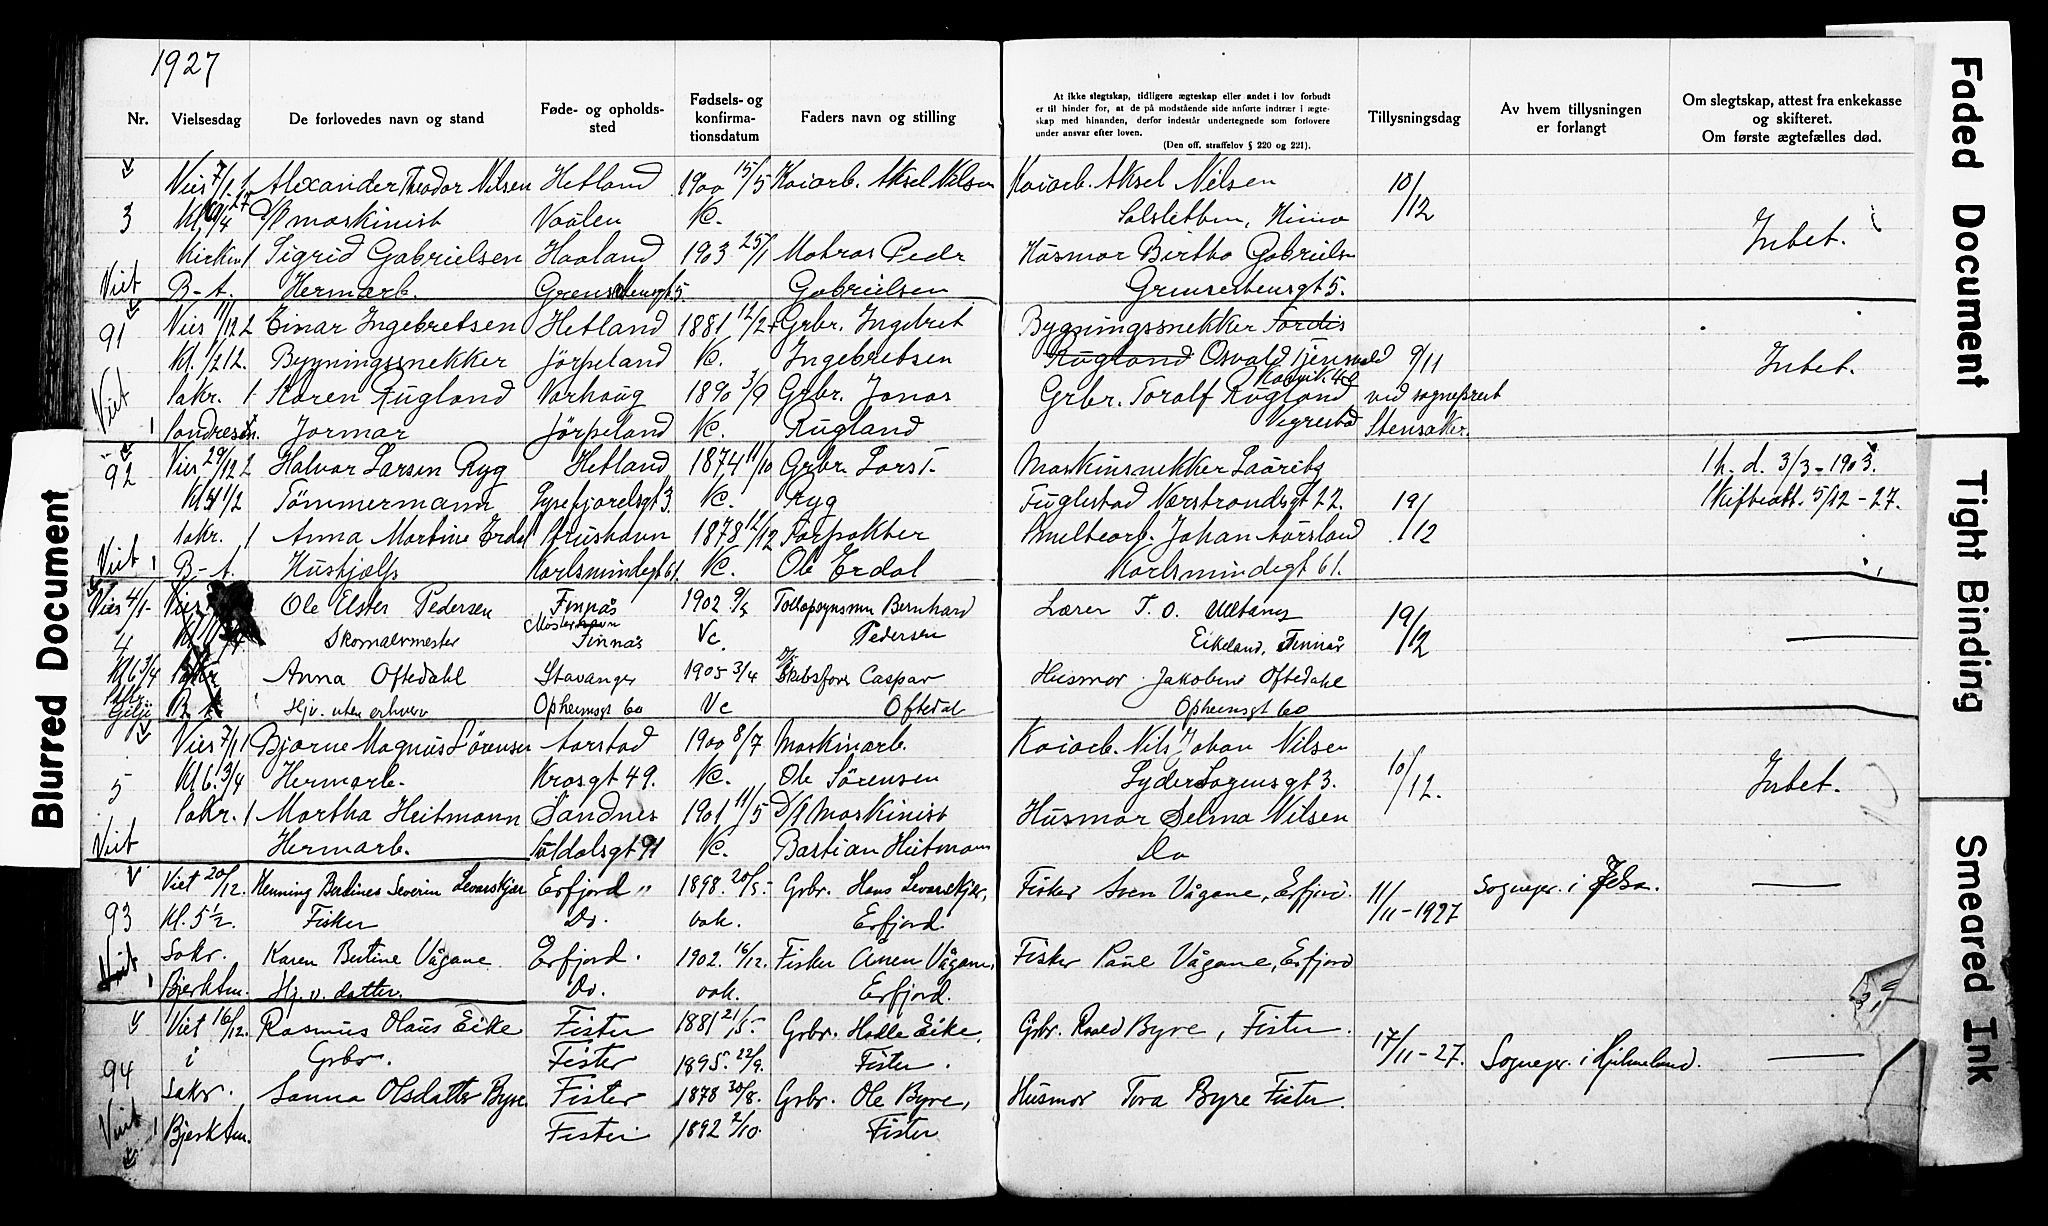 1927
Nr.
Vielsesdag
De forlovedes navn og stand
Føde- og opholds-
sted
Fødsels- og
konfirma-
tionsdatum
Faders navn og stilling
At ikke slegtskap, tidligere ægteskap eller andet i lov forbudt
er til hinder for, at de på modstående side anførte indtrær i ægte-
skap med hinanden, derfor indestår undertegnede som forlovere
under ansvar efter loven.
(Den off. straffelov § 220 og 221).
Tillysningsdag
Av hvem tillysningen
er forlangt
Om slegtskap, attest fra enkekasse
og skifteret.
Om første ægtefælles død.
Vies 7/1 Alexander Theodor Nilsen Hetland 1900 15/5 Kaiarb. Aksel Nilsen Kaiarb. Aksel Nilsen 10/12
3 D/S maskinist Vaalen Vc. Solsletten, Hinna
Kirken 1 Sigrid Gabrielsen Haaland 1903 25/1 Matros Peder Husmor Birtha Gabrielsen Intet.
Viet B-t. Hermarb. Grensestensgt 5. Gabrielsen Grensestensgt 5.
91 Vies 11/12 2 Einar Ingebretsen Hetland 1881 12/2 Grbr. Ingebret Bygningssnekker Tordis
Kl. 1/2 12. Bygningssnekker Jörpeland Vc. Ingebretsen Rugland Osvald 9/11 Intet.
Viet Sakr. 1 Karen Rugland Varhaug 1890 3/9 Grbr. Jonas Grbr. Toralf Rugland ved sogneprest
1 Jormor Jörpeland Vc. Rugland Vigrestad Stensaker.
92 Vies 29/12 2 Halvor Larsen Ryg Hetland 1874 11/10 Grbr. Lars T. Maskinsnekker Lauritz 1h. d. 3/3-1903.
Tömmermann Lysefjordsgt 3. Vc. Ryg Fuglestad Nærstrandsgt 22. 19/12 Skifteatt. 5/12-27.
Sakr. 1 Anna Martine Erdal 1878 12/12 Forpakter Smeltearb. Johan Aarsland
Viet 1 B-t. Hushjælp Karlsmindegt 61. Vc. Ole Erdal Karlsmindegt 61.
Vies 4/1- Vies Ole Elster Pedersen Finnås 1902 Tollopsynsmn Bernhard Lærer T. O. 19/12
4 Skomakermester Mosterhavn Finnås Vc. Pedersen Eikeland, Finnås
Kl 6 3/4 Sakr Anna Oftedahl Stavanger 1905 3/4 Skibsfører Caspar Husmor Jakobine Oftedahl
B. t. Hjv. uten erhverv Opheimsgt 60 Vc Oftedal Opheimsgt 60
Vies 7/1 1 Bjarne Magnus Sörensen Aarstad 1900 8/7 Maskinarb. Kaiarb. Nils Johan Nilsen
5 Kl 6. 3/4 Hermarb. Krosgt 49. Vc. Ole Sörensen Lyder Sagensgt 3. 10/12. Intet.
Sakr. 1 Martha Heitmann Sandnes 1901 11/5 D/S Maskinist Husmor Selma Nilsen
Viet Hermarb. Suldalsgt 91 Vc. Bastian Heitmann Do
93 Viet 20/12. Henning Berdines Severin Levarskjær Erfjord " 1898. 20/5- Grbr. Hans Levarskjær, Fisker Sven Vågane, Erfjord. 11/11-1927 Sognepr. i Jelsa.
Kl. 5 1/2. Fisker Do. vak. Erfjord.
Sakr. Karen Bertine Vågane Erfjord. 1902. 16/12. Fisker Vågane, Fisker Paul Vågane, Erfjord
Viet Bjerktun. Hj. v. datter. Do. vak. Erfjord.
Viet 16/12. Rasmus Olaus Eike Fister 1881 21/5- Grbr. Halle Eike, Grbr. Roald Byre, Fister.
94 i Grbr. Fister 1895. 22/9. Fister. 17/11-27. Sognepr. i Hjelmeland.
Sakr. Sanna Olsdatter Byre Fister 1878 30/8. Grbr. Ole Byre, Husmor Tora Byre Fister.
Viet 1 Bjerktun. Fister 1892 2/10. Fister
Faded Document
Tight Binding
Smeared Ink
Blurred Document